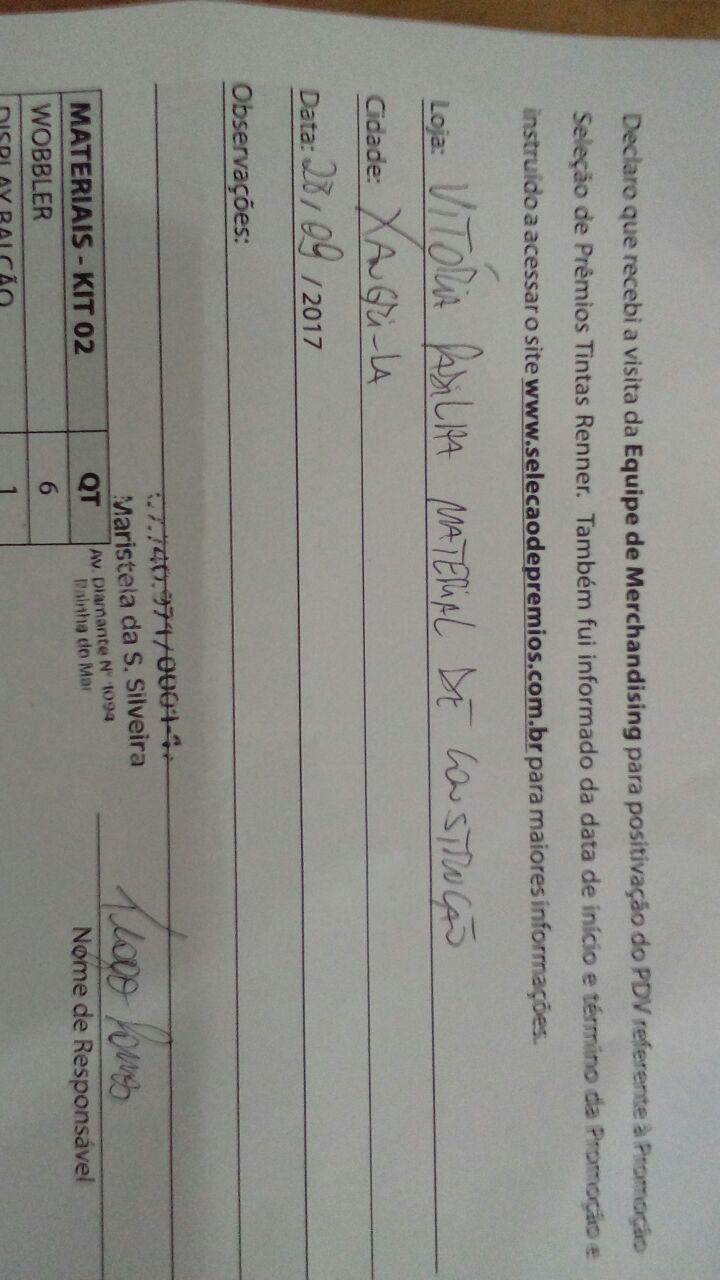 Declaro que recebi a visita da Equipe de Merchandising para positivação do PDV referente à Promoção
Seleção de Prêmios Tintas Renner. Também fui informado da data de início e término da Promoção e
instruído a acessar o site www.selecaodepremios.com.br para maiores informações.
Loja: VITÓRIA MATERIAL DE CONSTRUÇÃO
Cidade: XANGRI-LA
Data: 28/09/2017
Observações:
Maristela da S. Silveira
Av. Diamante Nº 1094
Rainha do Mar
Nome de Responsável
MATERIAIS - KIT 02 QT
WOBBLER 6
DISPLAY BALCÃO 1